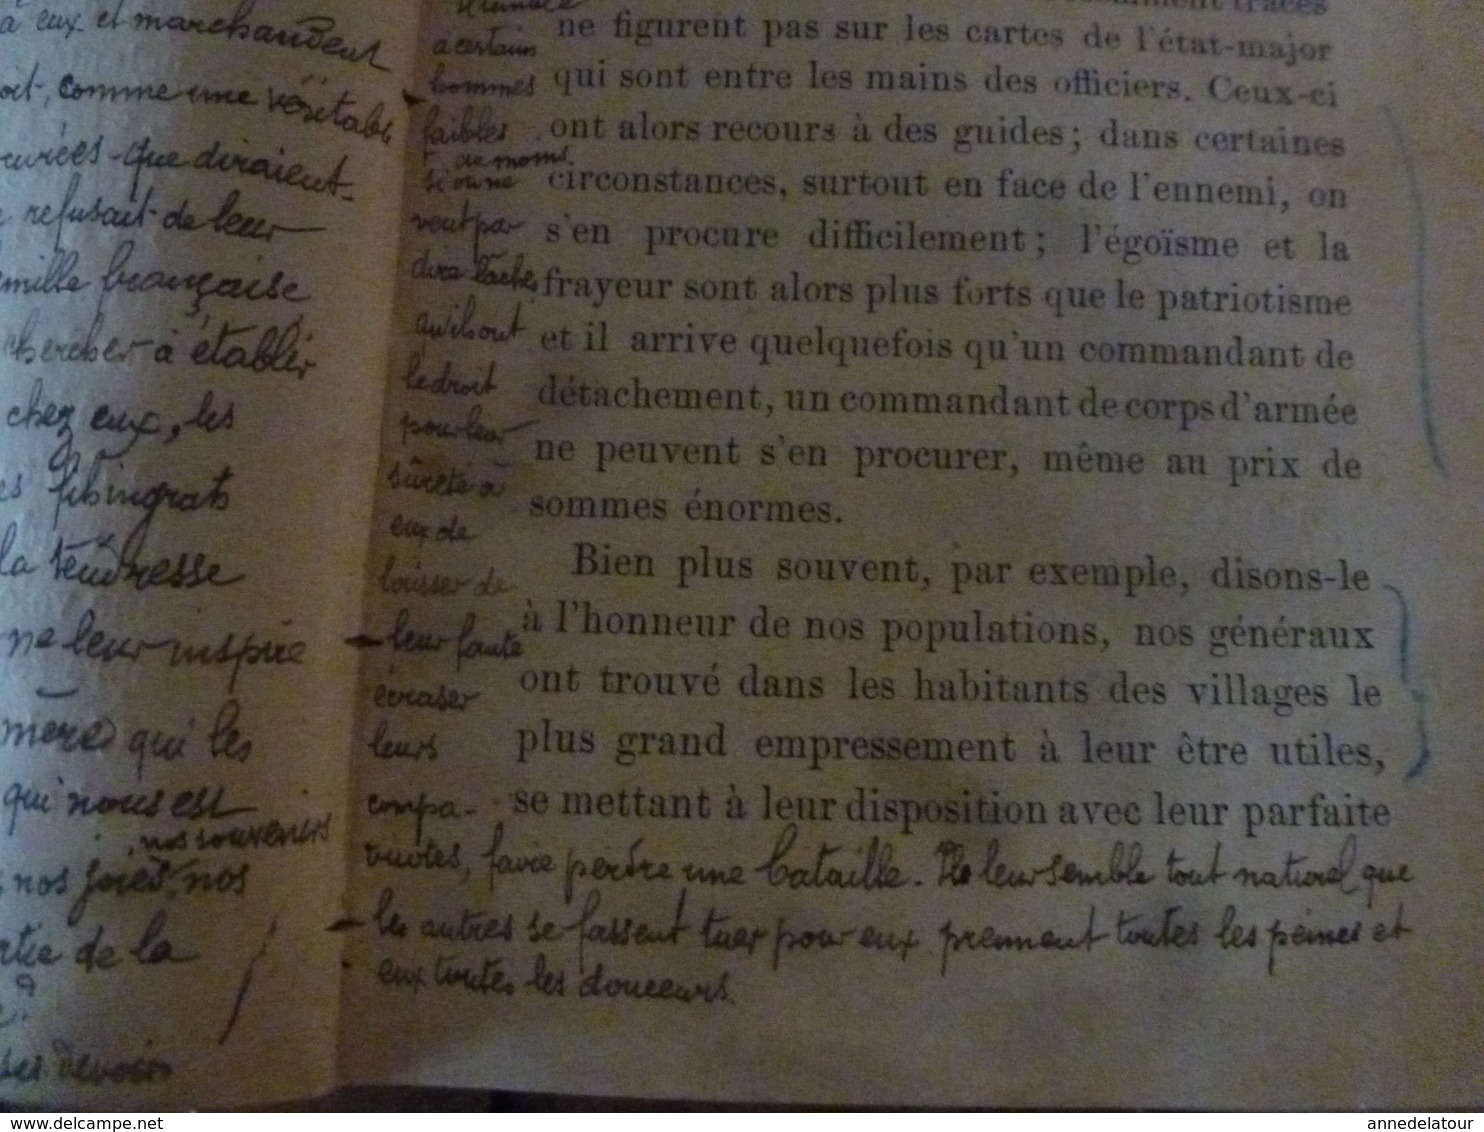 à eux et marchandent
comme une véritable
que diraient-
refusait de leur
française
chercher à établir
chez eux, les
fils ingrats
la tendresse
ne leur inspire
mère qui les
qui nous est
nos souvenirs
nos joies, nos
de la
?
devoirs
à certains
hommes
faibles
du moins
si on ne
veut pas
dire lâches
qu'ils ont
le droit
pour leur
sûreté à
eux de
laisser de
leur faute
écraser
leurs
compa-
ne figurent pas sur les cartes de l'état-major
qui sont entre les mains des officiers. Ceux-ci
ont alors recours à des guides; dans certaines
circonstances, surtout en face de l'ennemi, on
s'en procure difficilement; l'égoïsme et la
frayeur sont alors plus forts que le patriotisme
et il arrive quelquefois qu'un commandant de
détachement, un commandant de corps d'armée
ne peuvent s'en procurer, même au prix de
sommes énormes.
Bien plus souvent, par exemple, disons-le
à l'honneur de nos populations, nos généraux
ont trouvé dans les habitants des villages le
plus grand empressement à leur être utiles,
se mettant à leur disposition avec leur parfaite
faire perdre une bataille. Il leur semble tout naturel que
les autres se fassent tuer pour eux prennent toutes les peines et
eux toutes les douceurs.
annedelatour